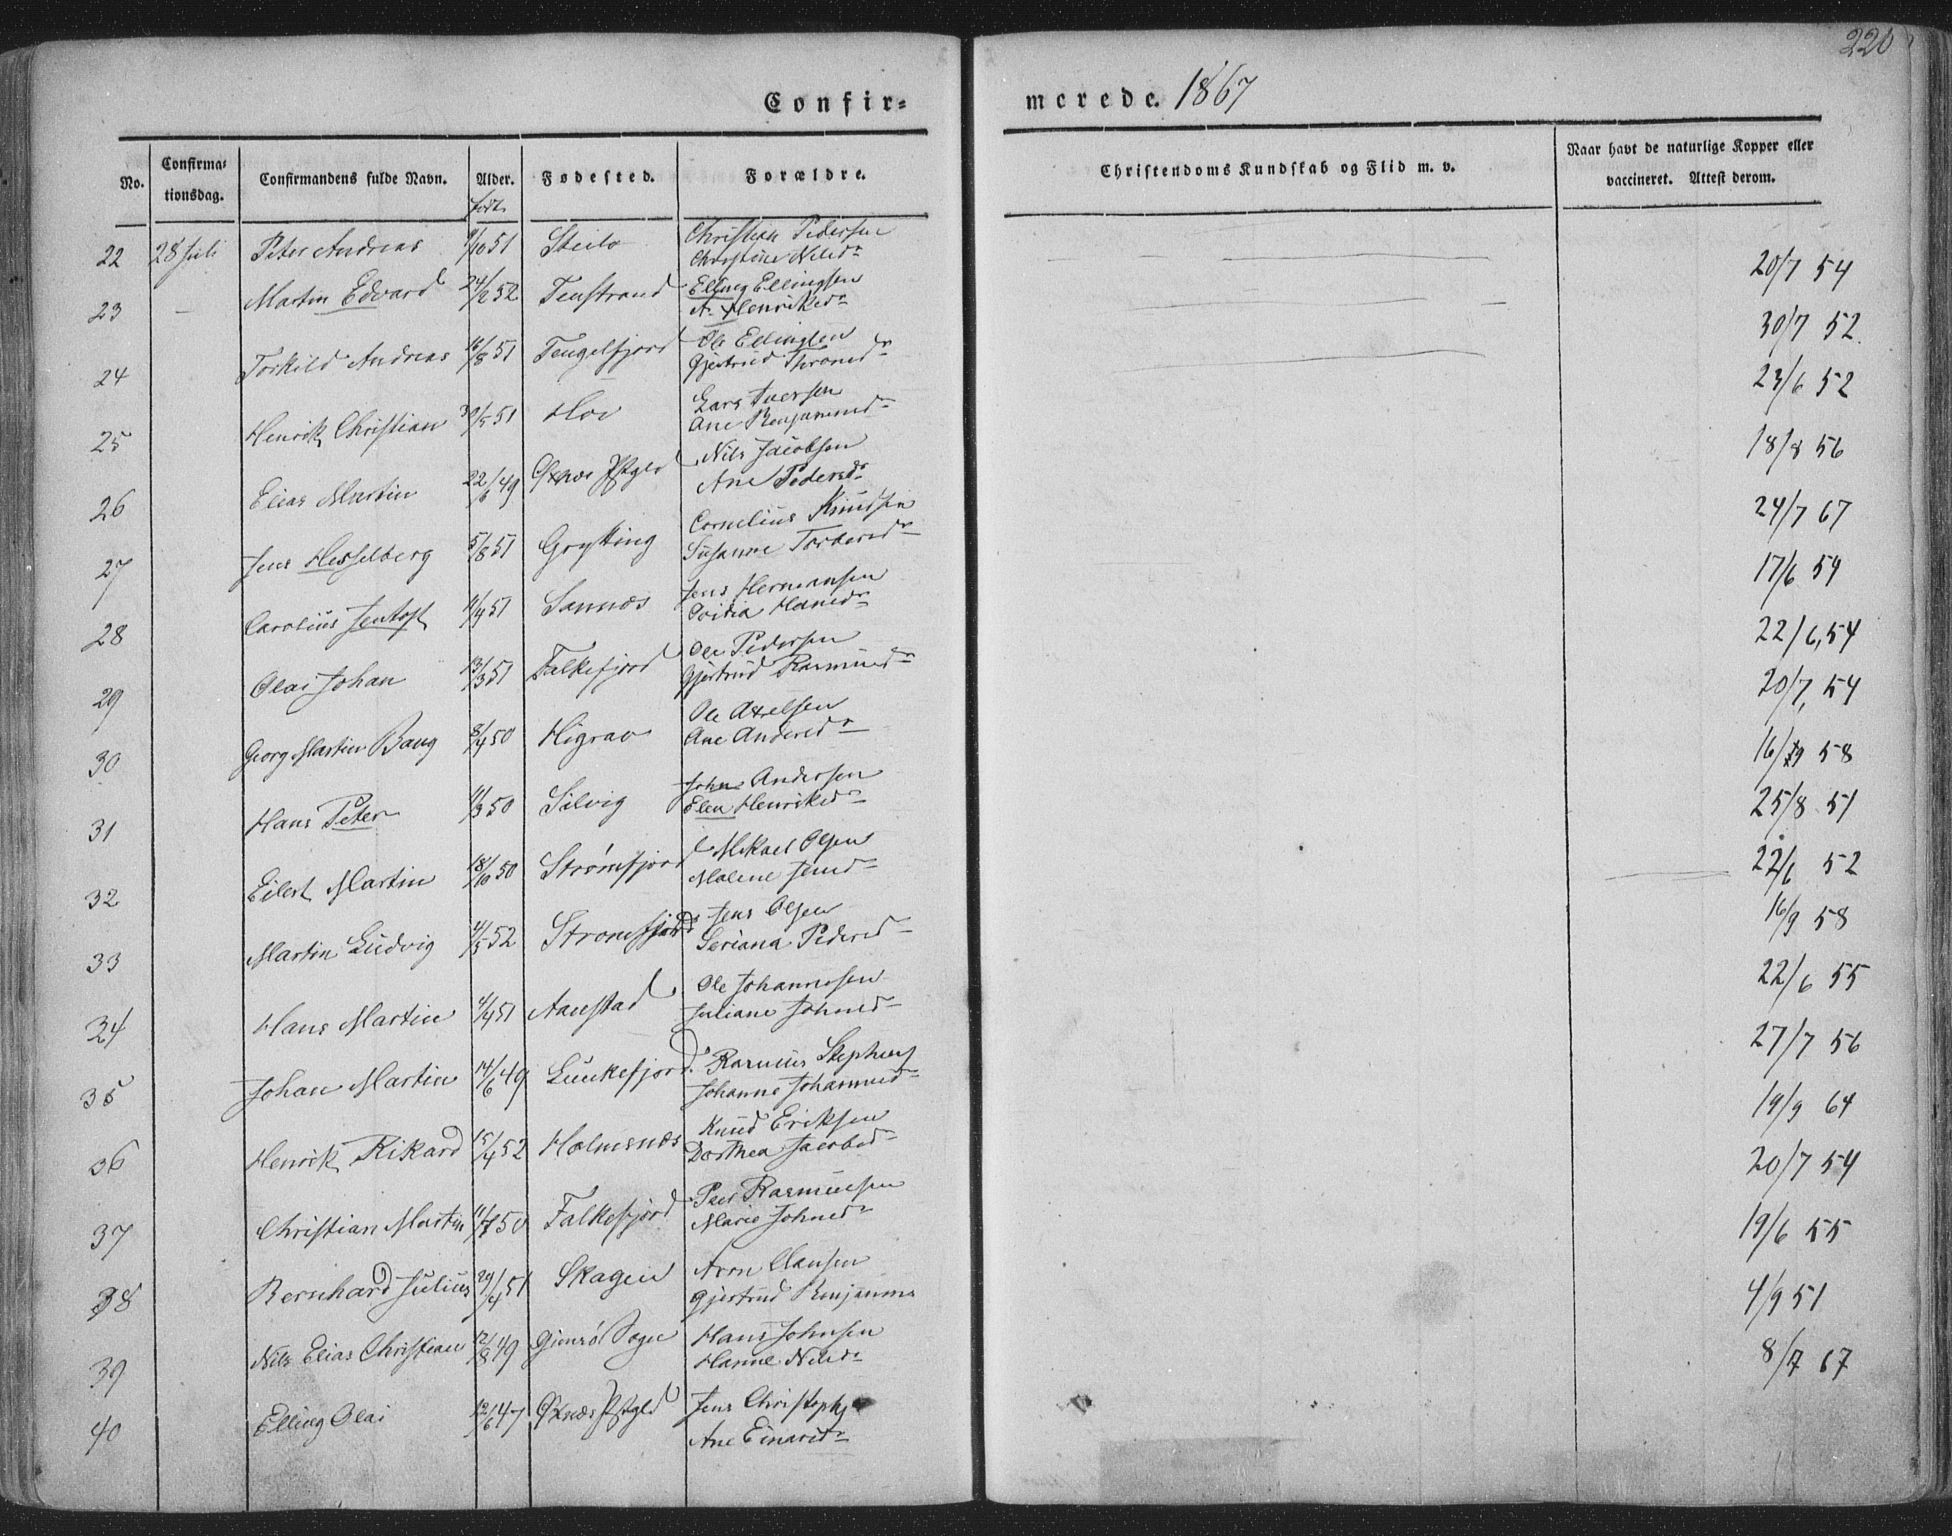 220
Confir= merede. 1867
No. Confirmationsdag. Confirmandens fulde Navn. Alder. Fødested. Forældre. Christendoms Kundskab og Flid m. v. Naar havt de naturlige Kopper eller vaccineret. Attest derom.
født
22 28 Juli Peter Andreas 9/10 51 Steilo Christian Pedersen 20/7 54
Christine Nilsdr
23 Martin Edvard 24/2 52 Tenstrand Elling Ellingsen 30/7 52.
A. Henriksdr
24 Torkild Andreas 16/8 51 Tengelfjord Ole Ellingsen 23/6 52
Gjertrud Thronsdr
25 Henrik Christian 30/5 51 Hov Lars Iversen 18/8 56
Ane Benjaminsdr
26 Elias Martin 22/6 49 Øxnes Pstgld Nils Jacobsen 24/7 67
Ane Pedersdr
27 Jens Hesselberg 5/8 51 Grytting Cornelius Knudsen 17/6 54
Susanne Torbersdr
28 Carolius Jentoft 11/9 51 Sannes Jens Hermansen 22/6, 54
Hansdr
29 Olai Johan 13/3 51 Falkefjord Ole Pedersen 20/7, 54
Gjertrud Rasmusdr
30 Georg Martin Bang 8/4 50 Higrav Ole Axelsen 16/9 58
Ane Andersdr
31 Hans Peter 11/3 50 Selvig Johns Andersen 25/8 51
Elen Henriksdr
32 Eilert Martin 18/10 50 Strømfjord Mikael Olsen 22/6 52
Malene Jensdr
33 Martin Ludvig 11/5 52 Strømfjord Jens Olsen 16/9 58
Seriana Pedersdr
34 Hans Martin 4/4 51 Aanstad Ole Johannesen 22/6 55
Juliane Johnsdr
35 Johan Martin 14/6 49 Lunkefjord Rasmus Stephens 27/7 56
Johanne Johannesdr
36 Henrik Rikard 15/4 52 Holmsnæs Knud Eriksen 19/9 64
Dorthea Jacobsdr
37 Christian Martin 11/7 50 Falkefjord Peer Rasmussen 20/7 54
Marie Johnsdr
38 Bernhard Julius 29/4 51 Skagen Aron Clausen 19/6 55
Gjertrud Benjamins
39 Nils Elias Christian 12/8 49 Gimsø Sogn Hans Johnsen 4/9 51
Hanne Nilsdr
40 Elling Olai 12/6 47 Øxnæs Pstgld Jens Christoph 8/7 67
Ane Einarsdr